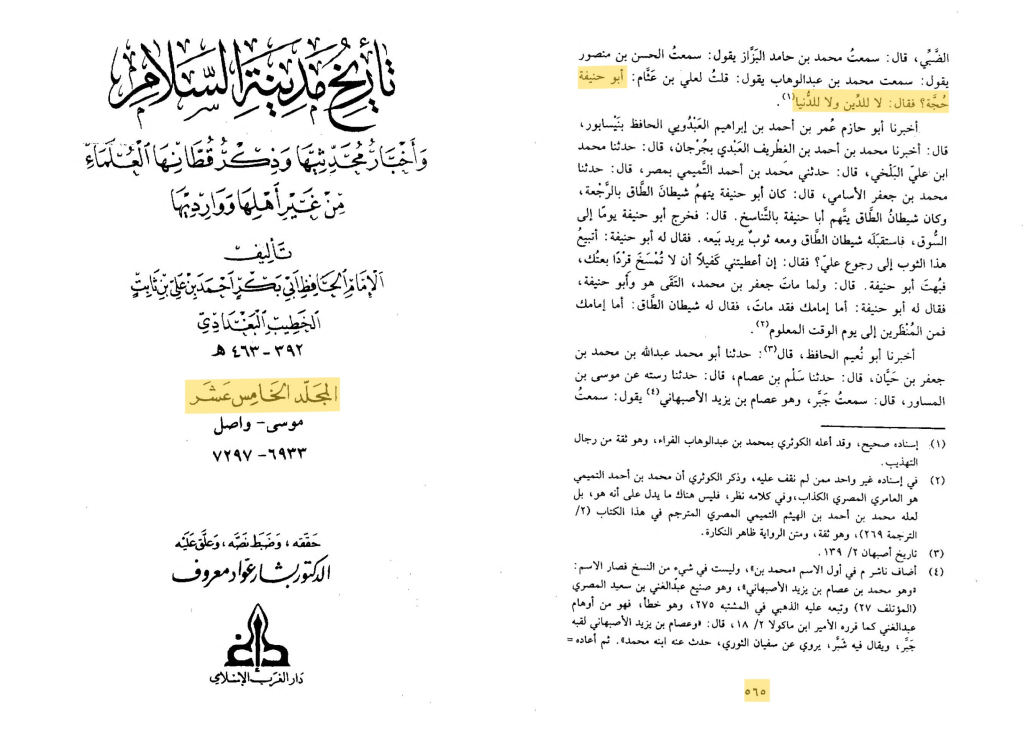 تأريخ مدينة السلام
وأخبار محدثيها وذكر قطانها العلماء
من غير أهلها ووارديها
تأليف
الإمام الحافظ أبي بكر أحمد بن علي بن ثابت
الخطيب البغدادي
٣٩٢ - ٤٦٣ هـ
المجلد الخامس عشر
موسى - واصل
٦٩٣٣ - ٧٢٩٧
حققه، وضبط نصه، وعلق عليه
الدكتور بشار عواد معروف
دار الغرب الإسلامي
الضَّبِّي، قال: سمعتُ محمد بن حامد البَزَّاز يقول: سمعتُ الحسن بن منصور
يقول: سمعت محمد بن عبدالوهاب يقول: قلتُ لعلي بن عَثَّام: أبو حنيفة
حُجَّة؟ فقال: لا للدِّين ولا للدُّنيا(١).
أخبرنا أبو حازم عُمر بن أحمد بن إبراهيم العَبْدُويي الحافظ بنَيْسابور،
قال: أخبرنا محمد بن أحمد بن الغطريف العَبْدي بجُرْجان، قال: حدثنا محمد
ابن عليّ البَلْخي، قال: حدثني محمد بن أحمد التَّميمي بمصر، قال: حدثنا
محمد بن جعفر الأسامي، قال: كان أبو حنيفة يتهمُ شيطانَ الطَّاق بالرَّجْعة،
وكان شيطانُ الطَّاق يتَّهم أبا حنيفة بالتَّناسخ. قال: فخرج أبو حنيفة يومًا إلى
السُّوق، فاستقبَلَه شيطان الطَّاق ومعه ثوبٌ يريد بَيعه. فقال له أبو حنيفة: أتبيعُ
هذا الثوب إلى رجوع عليّ؟ فقال: إن أعطيتني كَفيلاً أن لا تُمْسَخَ قِرْدًا بعتُك،
فبُهتَ أبو حنيفة. قال: ولما ماتَ جعفر بن محمد، التَقَى هو وأبو حنيفة،
فقال له أبو حنيفة: أما إمامك فقد ماتَ، فقال له شيطان الطَّاق: أما إمامك
فمن المُنْظَرين إلى يوم الوقت المعلوم(٢).
أخبرنا أبو نُعيم الحافظ، قال(٣): حدثنا أبو محمد عبدالله بن محمد بن
جعفر بن حَيَّان، قال: حدثنا سَلْم بن عصام، قال: حدثنا رسته عن موسى بن
المساور، قال: سمعتُ جَبَّر، وهو عصام بن يزيد الأصبهاني(٤) يقول: سمعتُ
(١) إسناده صحيح، وقد أعله الكوثري بمحمد بن عبدالوهاب الفراء، وهو ثقة من رجال
التهذيب.
(٢) في إسناده غير واحد ممن لم نقف عليه، وذكر الكوثري أن محمد بن أحمد التميمي
هو العامري المصري الكذاب، وفي كلامه نظر، فليس هناك ما يدل على أنه هو، بل
لعله محمد بن أحمد بن الهيثم التميمي المصري المترجم في هذا الكتاب (٢/
الترجمة ٢٦٩)، وهو ثقة، ومتن الرواية ظاهر النكارة.
(٣) تاريخ أصبهان ٢/ ١٣٩.
(٤) أضاف ناشر م في أول الاسم «محمد بن»، وليست في شيء من النسخ فصار الاسم:
«وهو محمد بن عصام بن يزيد الأصبهاني»، وهو صنيع عبدالغني بن سعيد المصري
(المؤتلف ٢٧) وتبعه عليه الذهبي في المشتبه ٢٧٥، وهو خطأ، فهو من أوهام
عبدالغني كما قرره الأمير ابن ماكولا ٢/ ١٨، قال: «وعصام بن يزيد الأصبهاني لقبه
جَبَّر، ويقال فيه شَبَّر، يروي عن سفيان الثوري، حدث عنه ابنه محمد». ثم أعاده=
٥٦٥